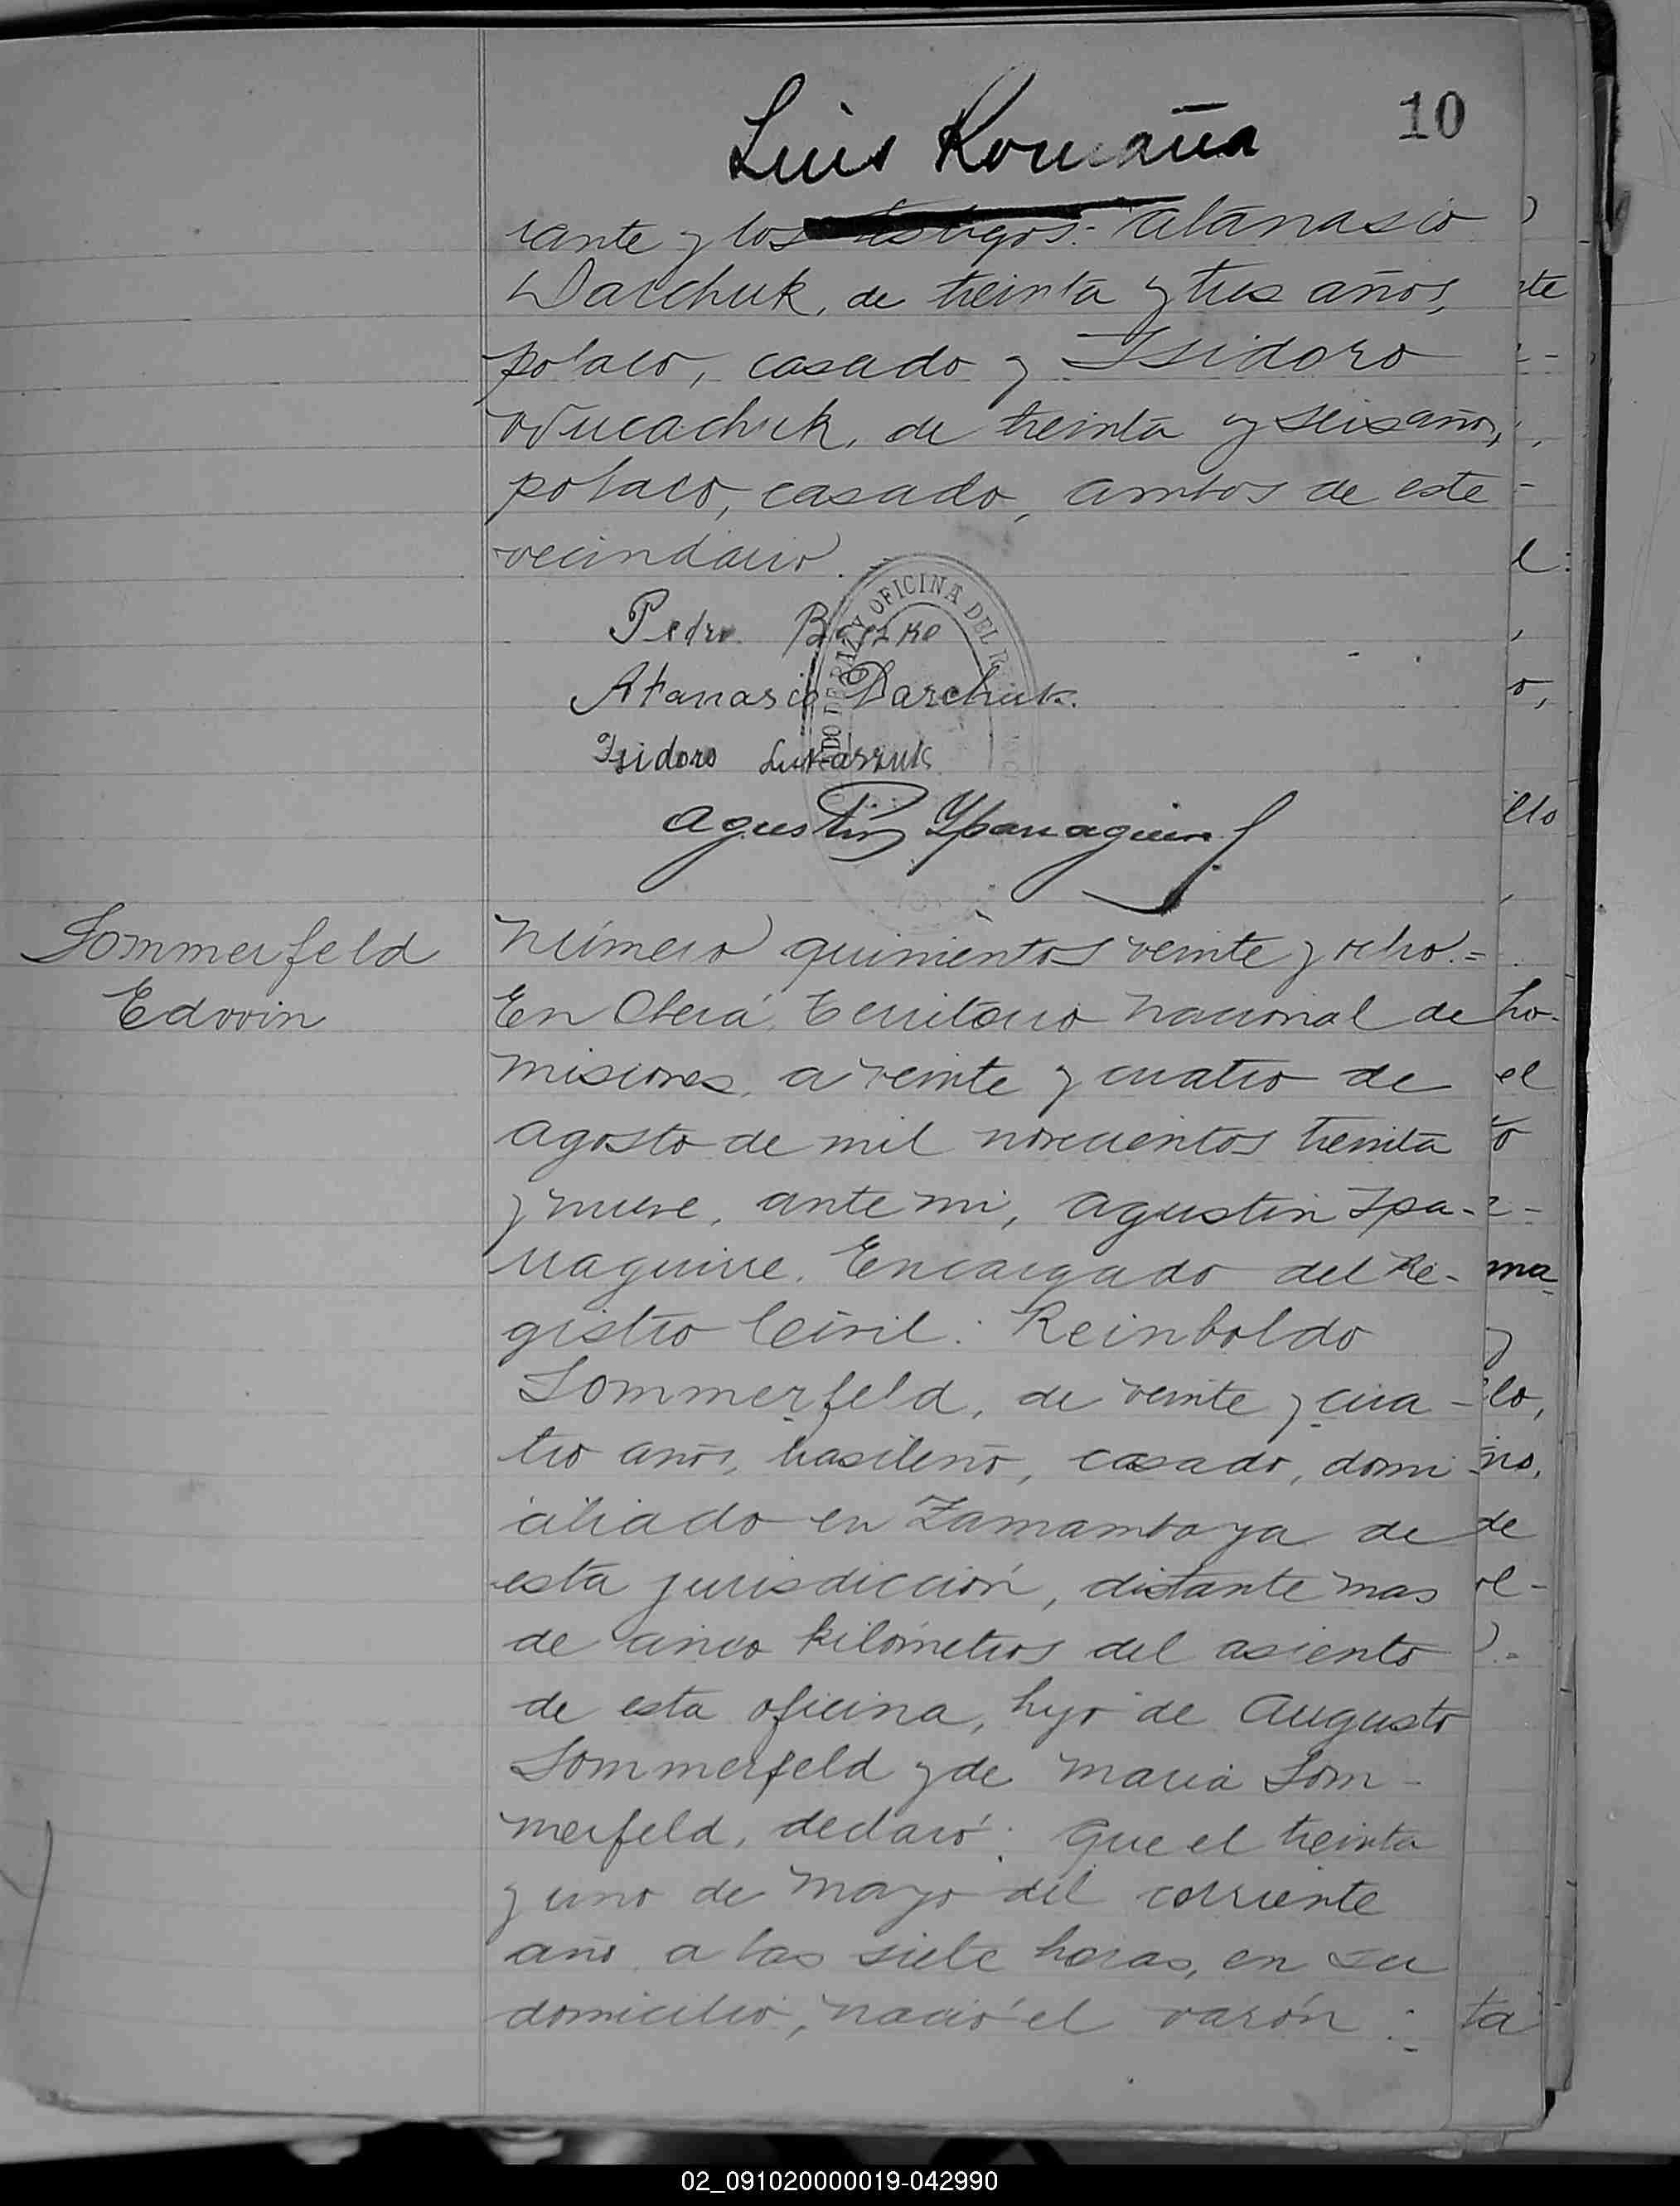 10
Luis Romaña
rante y los testigos: Atanasio
Darchuk, de treinta y tres años,
polaco, casado y Isidoro
de treinta y seis años,
polaco, casado, ambos de este
vecindario.
Pedro
Atanasio Darchuk.
Isidoro Lukaszuk
OFICINA DEL
Agustin Yparraguirre
Sommerfeld
Edwin
Número quinientos veinte y ocho.=
En Oberá, Territorio Nacional de
Misiones, a veinte y cuatro de
Agosto de mil novecientos treinta
y nueve, ante mi, Agustin Ipa-
rraguirre, Encargado del Re-
gistro Civil: Reinholdo
Sommerfeld, de veinte y cua-
tro años, brasileño, casado, domi-
ciliado en Zamambaya de
esta jurisdicción, distante mas
de cinco kilómetros del asiento
de esta oficina, hijo de Augusto
Sommerfeld y de Maria Som-
merfeld, declaró: Que el treinta
y uno de Mayo del corriente
año a las siete horas, en su
domicilio, nació el varón:
02_091020000019-042990